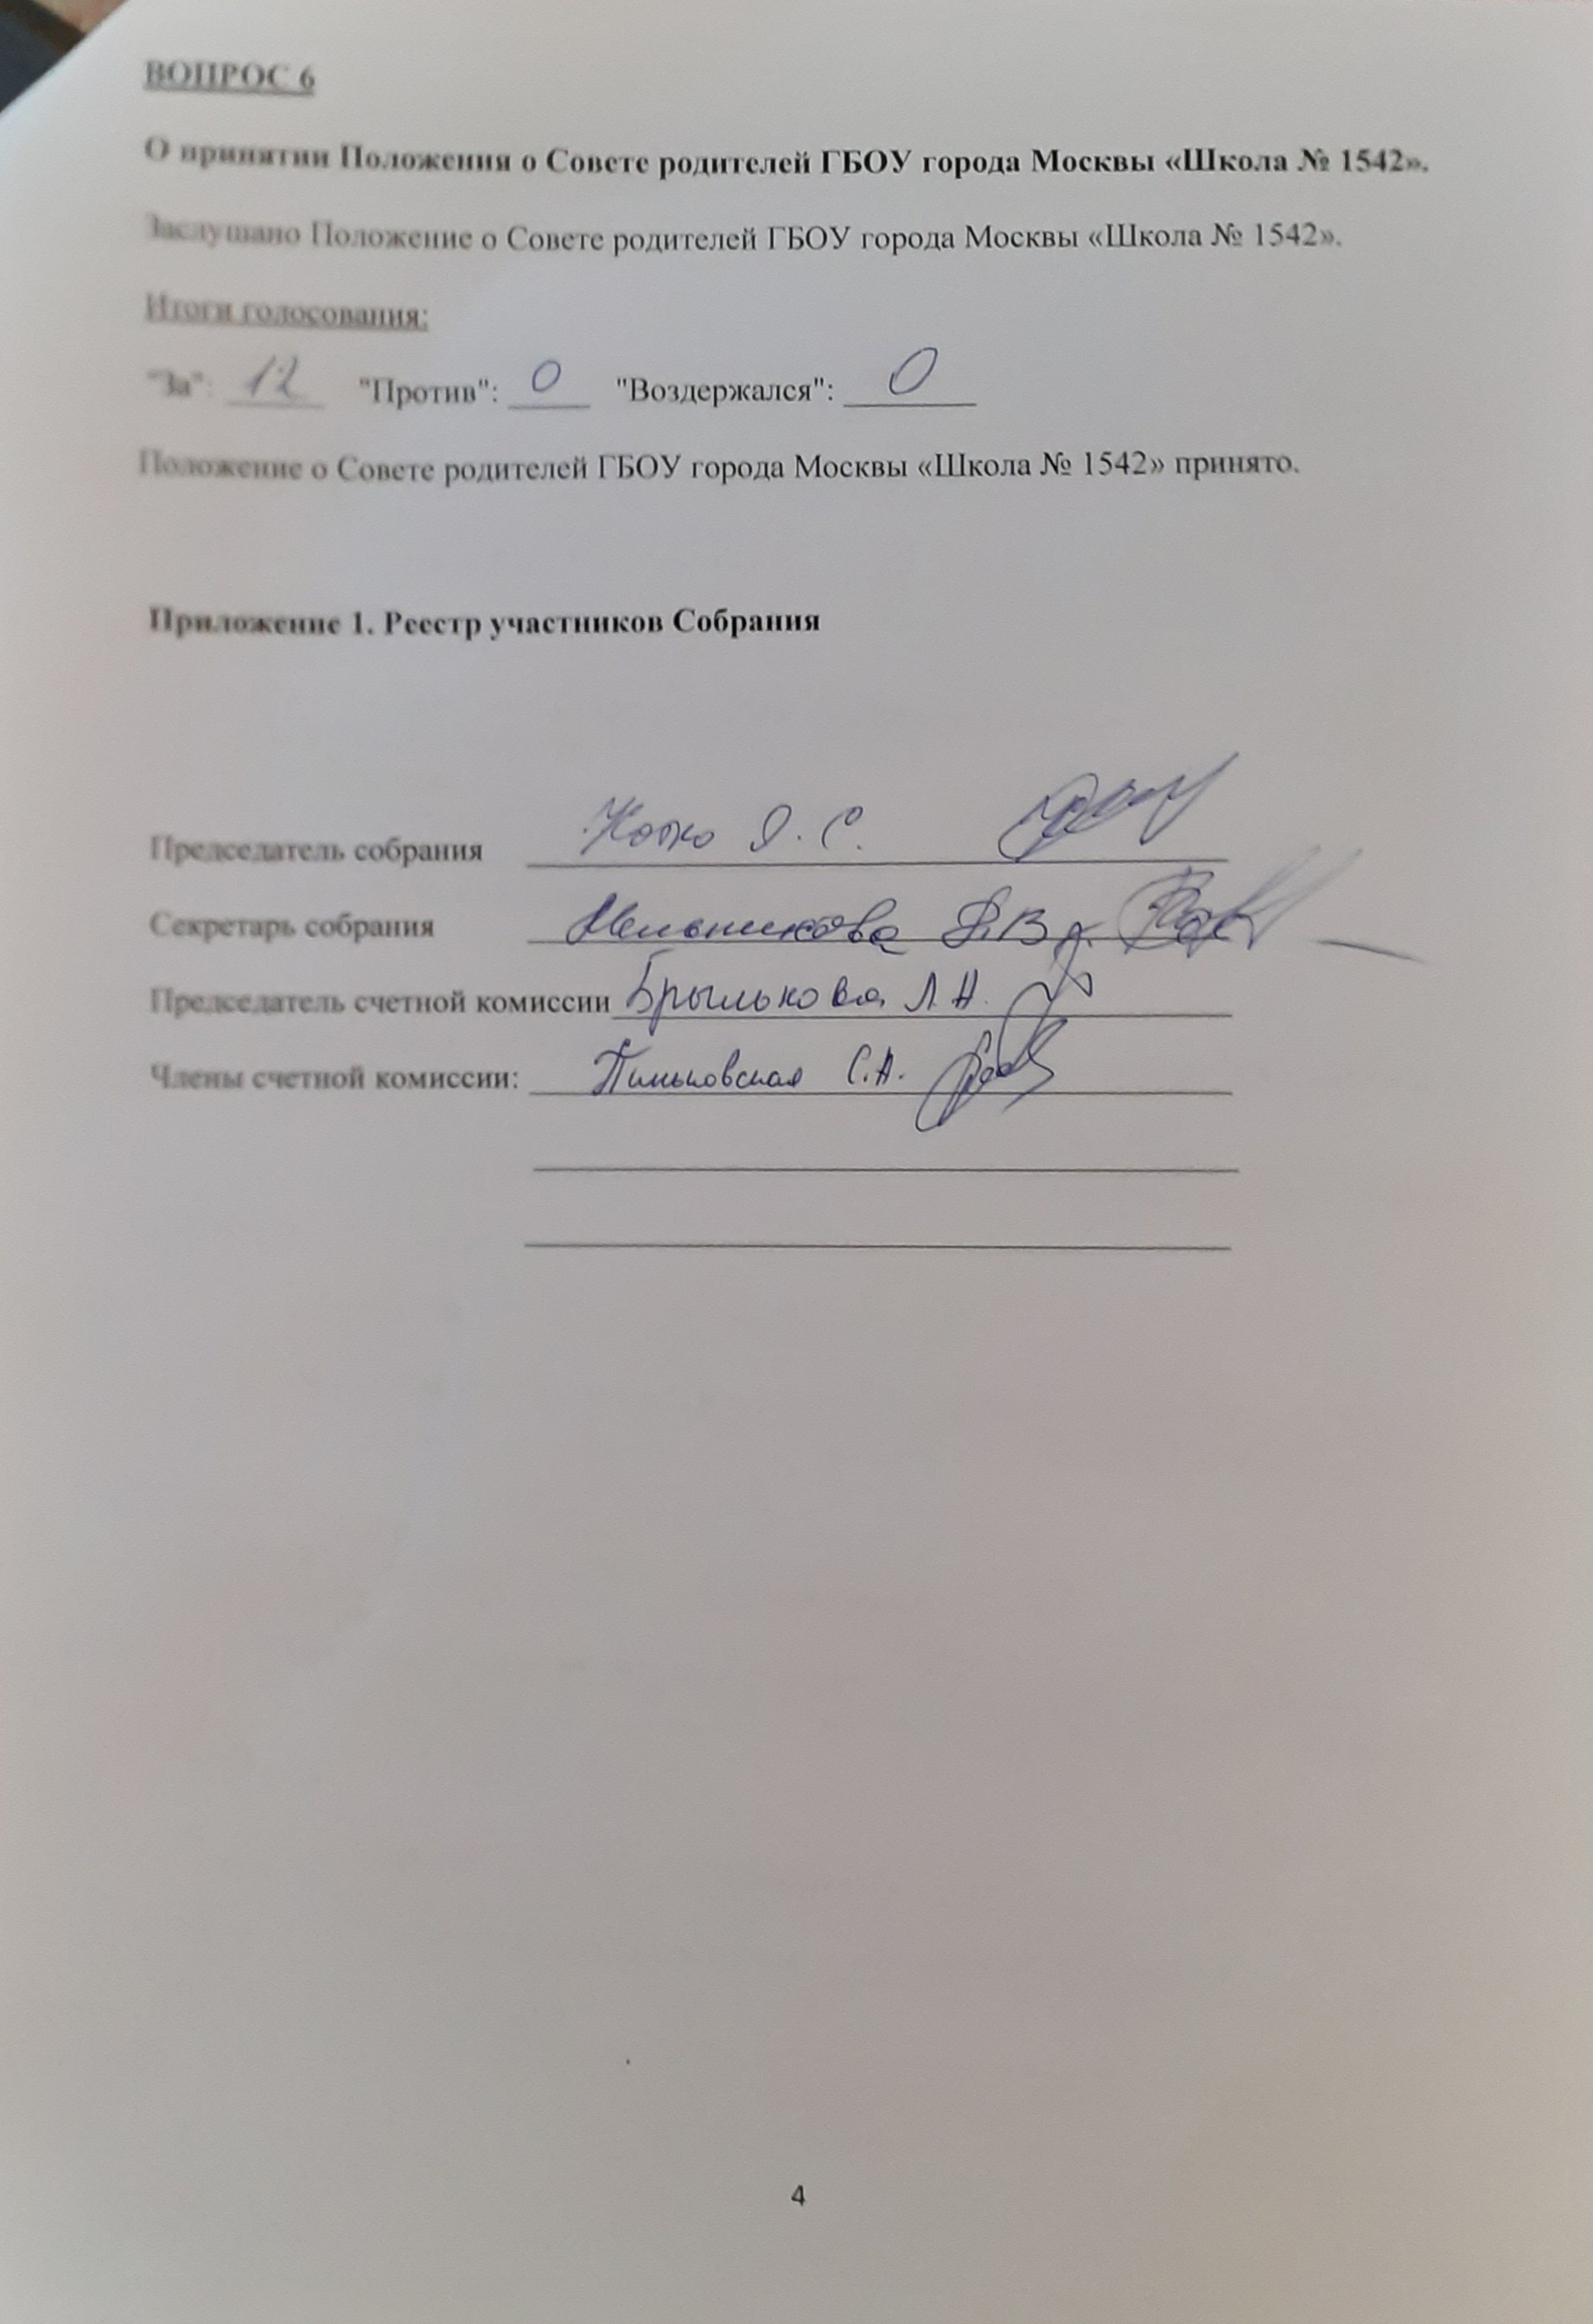 ВОПРОС 6
О принятии Положения о Совете родителей ГБОУ города Москвы «Школа № 1542».
Заслушано Положение о Совете родителей ГБОУ города Москвы «Школа № 1542».
Итоги голосования:
"За": 12 "Против": 0 "Воздержался": 0
Положение о Совете родителей ГБОУ города Москвы «Школа № 1542» принято.
Приложение 1. Реестр участников Собрания
Председатель собрания Я. С.
Секретарь собрания Мельникова
Председатель счетной комиссии Брылькова Л.А.
Члены счетной комиссии: Пиньковская С.А.
4